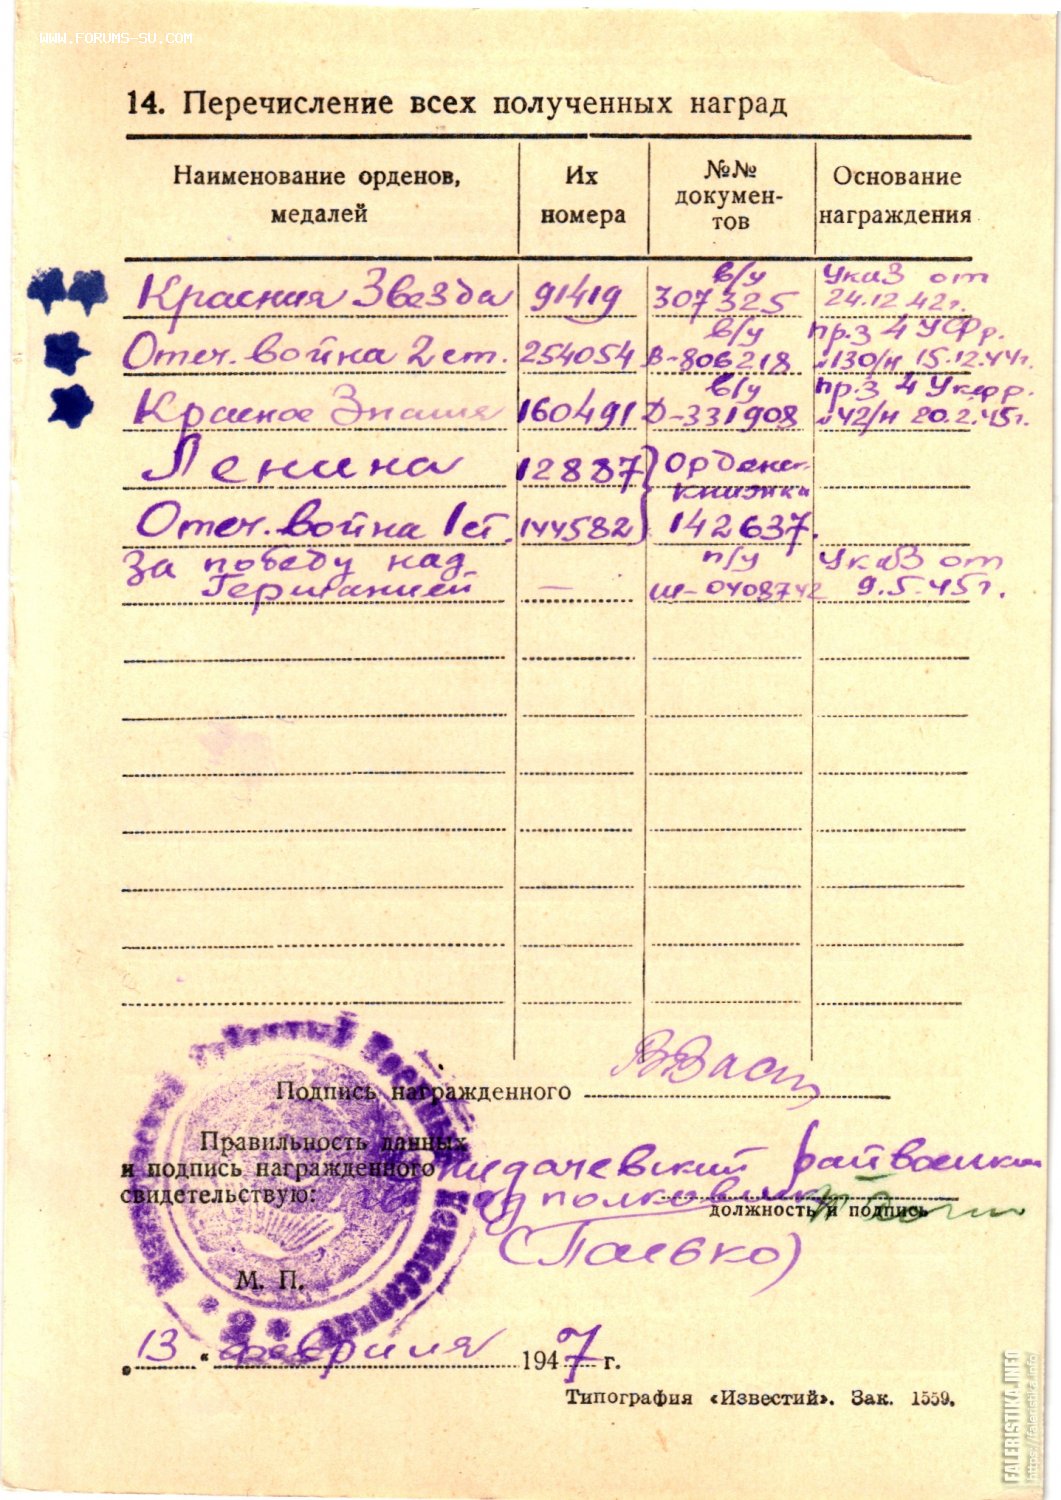 WWW.FORUMS-SU.COM
14. Перечисление всех полученных наград
Наименование орденов, медалей
Их номера
№№ докумен-тов
Основание награждения
Красная Звезда 91419 в/у 307325 Указ от 24.12.42г.
Отеч. война 2 ст. 254054 в/у В-806218 пр.з 4 Уфр. №130/н 15.12.44г.
Красное Знамя 160491 в/у Д-331908 пр.з 4 Укр.фр. №42/н 20.2.45г.
Ленина 12887 } Орденс. книжка
Отеч. война 1 ст. 144582 } 142637.
За победу над Германией — п/у Ш-0408742 Указ от 9.5.45г.
Подпись награжденного
Правильность данных
и подпись награжденного
свидетельствую:
райвоенком
подполковник
должность и подпись
(Палько)
М. П.
„ 13 “ февраля 1947 г.
Типография «Известий». Зак. 1559.
FALERISTIKA.INFO
https://faleristika.info